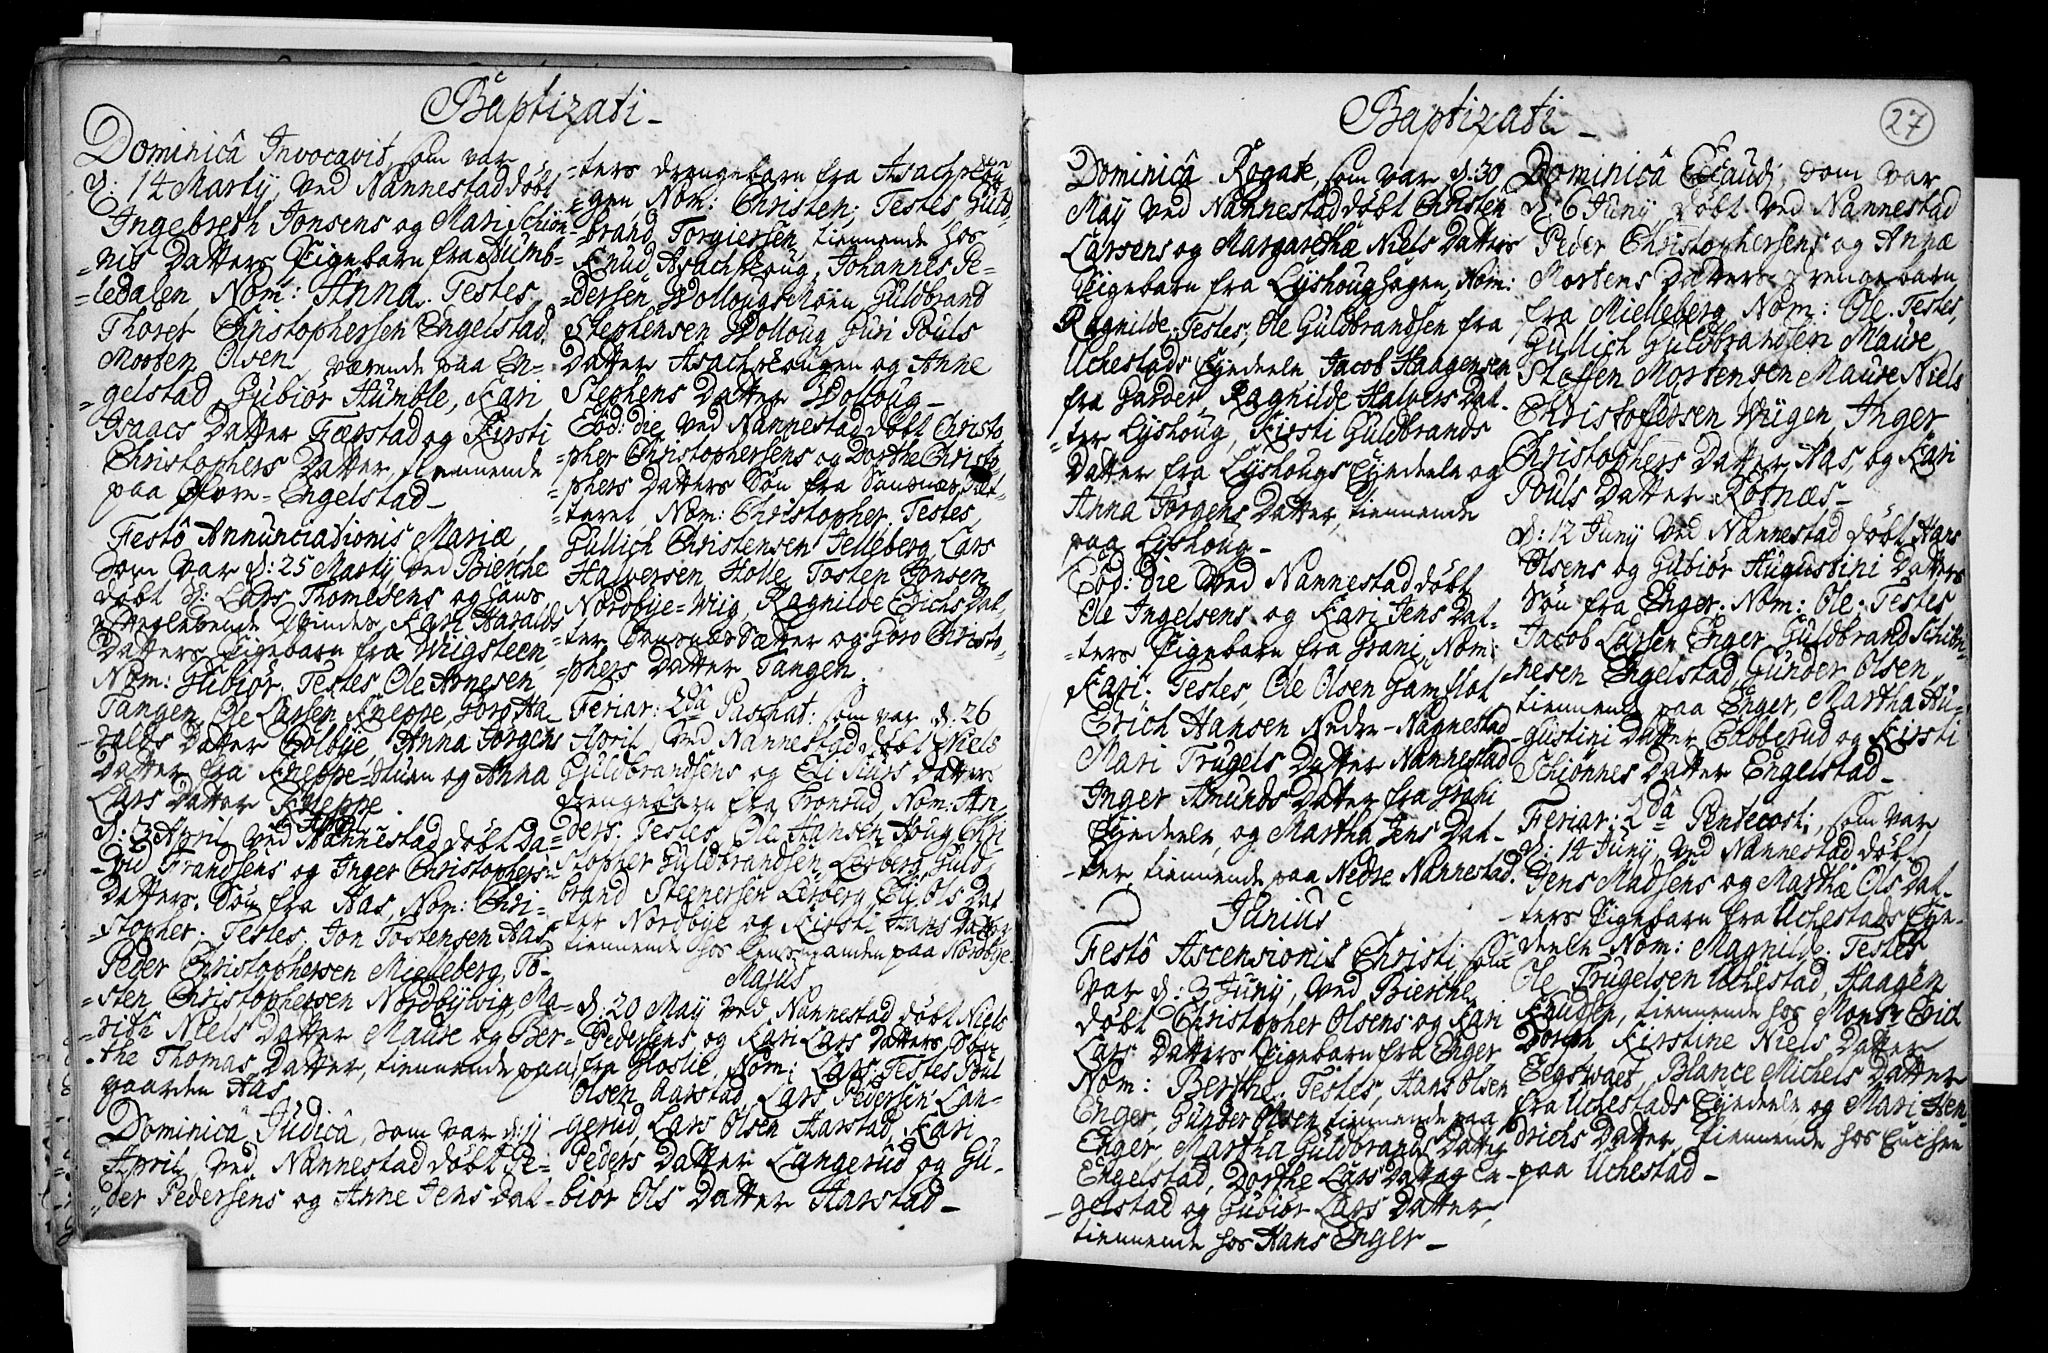 Baptizati
Dominicâ Invocavit, som var
d: 14 Martÿ, ved Nannestad döbt
Ingebreth Jonsens og Mari Schiön-
-nis Datters Pigebarn fra Humb-
-ledalen Nom: Anna. Testes
Thorer Christophersen Engelstad,
Morten Olsen, værende paa En-
-gelstad, Gubiör Humble, Kari
Isaacs Datter Tægstad og Kirsti
Christophers Datter, tiennende
paa Øfvre-Engelstad-
Festô Annunciationis Mariæ,
som var d: 25 Martÿ ved Bierche
döbt Sl: Lars Thomesens og hans
efterlevende Qvindes, Kari Haralds
Datters Pigebarn fra Wiigsteen,
Nom: Gubiör. Testes Ole Arnesen
Tangen, Ole Larsen Kneppe, Goro Ha-
-ralds Datter Colbÿe, Anna Jörgens
Datter fra Kneppe-Stuen og Anna
Lars Datter Kneppe
April
d: 3 April ved Nannestad döbt Da-
-vid Frandsens og Inger Christophers-
Datters Sön fra Aas, Nom: Chri-
-stopher. Testes, Jon Tostensen Aas,
Peder Christophersen Mielleberg, To-
-sten Christophersen Nordbÿwig, Ma-
-rithe Niels Datter Maure og Ber-
-the Thomas Datter, tiennende paa
gaarden Aas
Dominicâ Judica, som var d: 11
April, ved Nannestad döbt Pe-
-der Pedersens og Anne Jens Dat-
-ters drengebarn fra Asachschou-
-gen Nom: Christen; Testes, Guld-
-brand Torgiersen tiennende hos
Knud Asachschoug, Johannes Pe-
-dersen WollougsMoen, Guldbrand
Stephensen Wolloug, Guri Pouls
Datter Asachschougen og Anne
Stephens Datter Wolloug-
Eod: die ved Nannestad döbt Christo-
-pher Christophersens og Dorthe Christo-
-phers Datters Sön fra Sandnæs Sæt-
-teret, Nom: Christopher. Testes,
Gullich Christensen Jelleberg, Lars
Halversen Holle, Tosten Jonsen
Nordbÿe-Wiig, Ragnilde Erichs Dat-
-ter Sandnæs Sætter og Goro Christo-
-phers Datter Tangen.
Feriar: 2dâ Paschat: som var d: 26
April, ved Nannestad döbt Niels
Guldbrandsens og Eli Siurs Datters
Drengebarn fra Tronsrud, Nom: An-
-ders. Testes, Ole Hansen Houg, Chri-
-stopher Guldbrandsen Lesberg, Guld-
brand Steenersen Lesberg, Eli Ols Dat-
ter Nordbÿe og Kirsti Hans Datter
tiennende hos paa Nordbÿe
Majus
d: 20 Maÿ ved Nannestad döbt Niels
Pedersens og Kari Lars Datters Sön
fra Hoslie, Nom: Lars. Testes Poul
Olsen Aarstad, Lars Pedersen Lan-
-gerud, Lars Olsen Harstad, Kari
Peders Datter Langerud og Gu-
-biör Ols Datter Harstad-
Baptizati
27
Dominicâ Rogate, som var d: 30
Maÿ ved Nannestad döbt Christen
Larsens og Margarethæ Niels Datters
Pigebarn fra Lÿshoughagen, Nom:
Ragnilde. Testes, Ole Guldbrandsen fra
Uchestads Eÿedeele Jacob Haagensen
fra Gadder, Ragnilde Halvers Dat-
-ter Lÿshoug, Kirsti Guldbrands
Datter fra Lÿshougs Eÿedeele og
Anna Jörgens Datter, tiennende
paa Lÿshoug-
Eod: die ved Nannestad döbt
Ole Ingelsens og Kari Jens Dat-
-ters Pigebarn fra Grani, Nom:
Kari. Testes, Ole Olsen Gamflot
Erich Hansen Nedre-Nannestad
Mari Trugels Datter Nannestad
Inger Amunds Datter fra Grani
Eÿedeele, og Martha Jens Dat-
-ter, tiennende paa Nedre Nannestad.
Junius
Festô Ascensionis Christi som
var d: 3 Junÿ, ved Bierche
döbt Christopher Olsens og Kari
Lars Datters Pigebarn fra Enger
Nom: Berthe. Testes, Hans Olsen
Enger, Gunder Olsen tiennende paa
Enger, Martha Guldbrands Datter
Engelstad, Dorthe Lars Datter En-
-gelstad og Gubiör Lars Datter,
tiennende hos Hans Enger-
Dominicâ Exaudi, som var
d: 6 Junÿ döbt ved Nannestad
Peder Christophersens og Annæ
Mortens Datters Drengebarn
fra Mielleberg, Nom: Ole. Testes,
Gullich Guldbrandsen Maure
Steffen Mortensen Maure Niels
Christofersen Wiigen, Inger
Christophers Datter Aas, og Kari
Pouls Datter Rotnæs-
d: 12 Junÿ ved Nannestad döbt Hans
Olsens og Gubiör Augustini Datters
Sön fra Enger. Nom: Ole. Testes
Jacob Larsen Enger, Guldbrand Schiön-
-nesen Engelstad, Gunder Olsen,
tiennende paa Enger, Martha Au-
-gustini Datter Ebberud og Kirsti
Schiönnes Datter Engelstad-
Feriar: 2dâ Pentecost:, som var
d: 14 Junÿ ved Nannestad döbt
Jens Madsens og Marthæ Ols Dat-
-ters Pigebarn fra Uchestads Eÿe-
deele Nom: Magnilde. Testes
Ole Trugelsen Uchestad, Haagen
Knudsen, tiennende hos Monsr Erich
Dorph Kirstine Niels Datter
Eegswaet, Blance Michels Datter
fra Uchestads Eÿedeele og Mari Hen-
drichs Datter, tiennende hos Enchen
paa Uchestad-